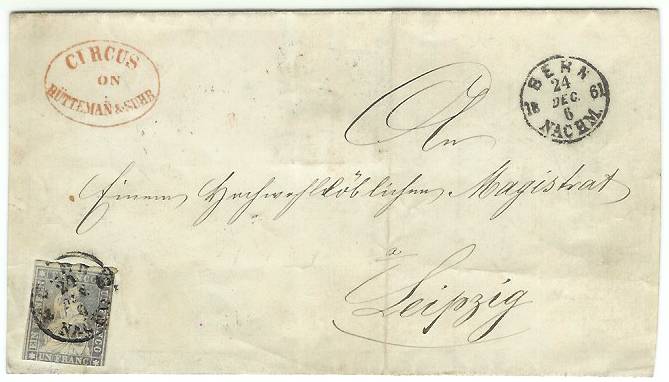 CIRCUS
ON
HÜTTEMAÑ & SUHR
BERN
24
DEC.
18 61
6
NACHM.
An
Einem Hochwohllöblichen Magistrat
a
Leipzig
24
UN FRANC